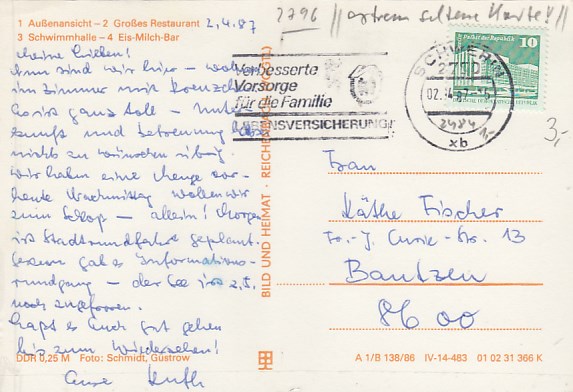 1 Außenansicht – 2 Großes Restaurant
3 Schwimmhalle – 4 Eis-Milch-Bar
2.4.87
2796 // extrem seltene Karte! //
Meine Lieben!
Nun sind wir hier –
im Zimmer mit
ist ganz toll –
und Betreuung
nichts zu wünschen übrig.
Wir haben eine Menge vor –
heute Nachmittag wollen wir
zum Schloß – allein! Morgen
ist Stadtrundfahrt geplant.
Gestern gab es Informations-
rundgang – der See ist z. T.
noch zugefroren.
Laßt es Euch gut gehen
bis zum Wiedersehen!
Eure Ruth
DDR 0,25 M Foto: Schmidt, Güstrow
BILD UND HEIMAT · REICHENBACH (VOGTL)
Verbesserte
Vorsorge
für die Familie
LEBENSVERSICHERUNG!
SCHWERIN
2750
02.-4.87
xb
10
Palast der Republik
2484 1,-
3,-
Frau
Käthe Fischer
Fr.-J.-Curie-Str. 13
Bautzen
8600
A 1/B 138/86 IV-14-483 01 02 31 366 K